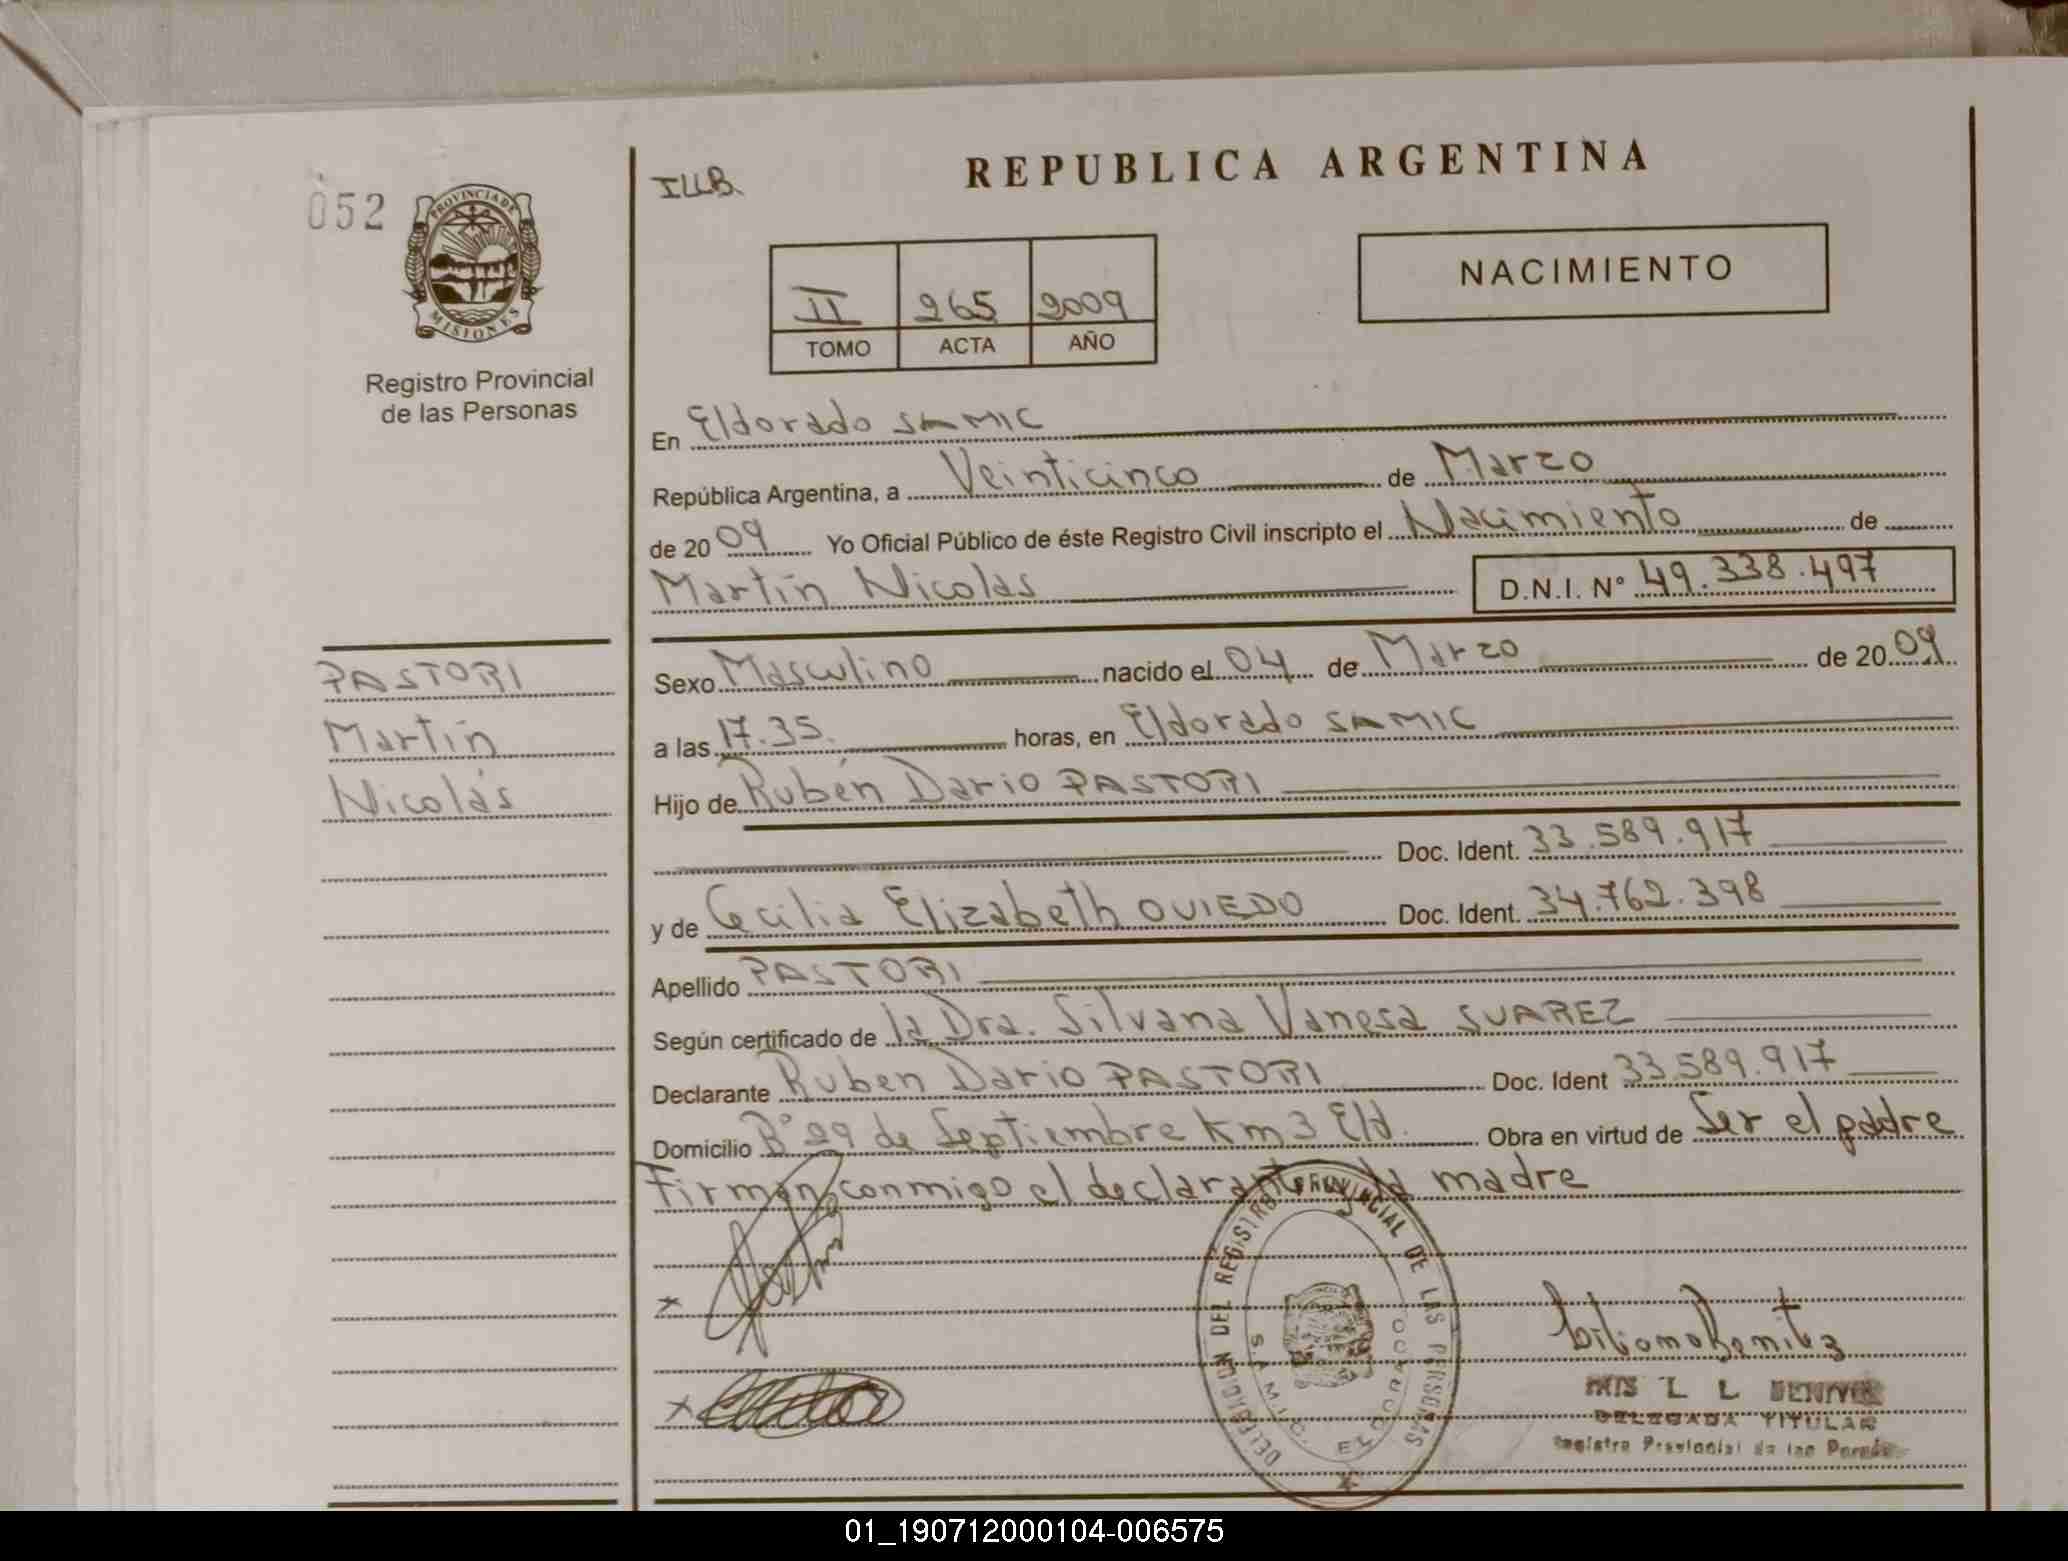 052
PROVINCIA DE
MISIONES
Registro Provincial
de las Personas
ILLB.
REPUBLICA ARGENTINA
NACIMIENTO
II 265 2009
TOMO ACTA AÑO
En Eldorado SAMIC
República Argentina, a Veinticinco de Marzo
de 2009 Yo Oficial Público de éste Registro Civil inscripto el Nacimiento de
Martín Nicolas D.N.I. Nº 49.338.497
PASTORI
Martín
Nicolás
Sexo Masculino nacido el 04 de Marzo de 2009
a las 17.35. horas, en Eldorado SAMIC
Hijo de Rubén Dario PASTORI
Doc. Ident. 33.589.917
y de Cecilia Elizabeth OVIEDO Doc. Ident. 34.762.398
Apellido PASTORI
Según certificado de la Dra. Silvana Vanesa SUAREZ
Declarante Ruben Dario PASTORI Doc. Ident 33.589.917
Domicilio Bº 29 de Septiembre Km 3 Eld. Obra en virtud de Ser el padre
Firman conmigo el declarante y la madre
DELEGACION DEL REGISTRO PROVINCIAL DE LAS PERSONAS
S.A.M.I.C. ELDORADO
DELEGADA TITULAR
Registro Provincial de las
01_190712000104-006575